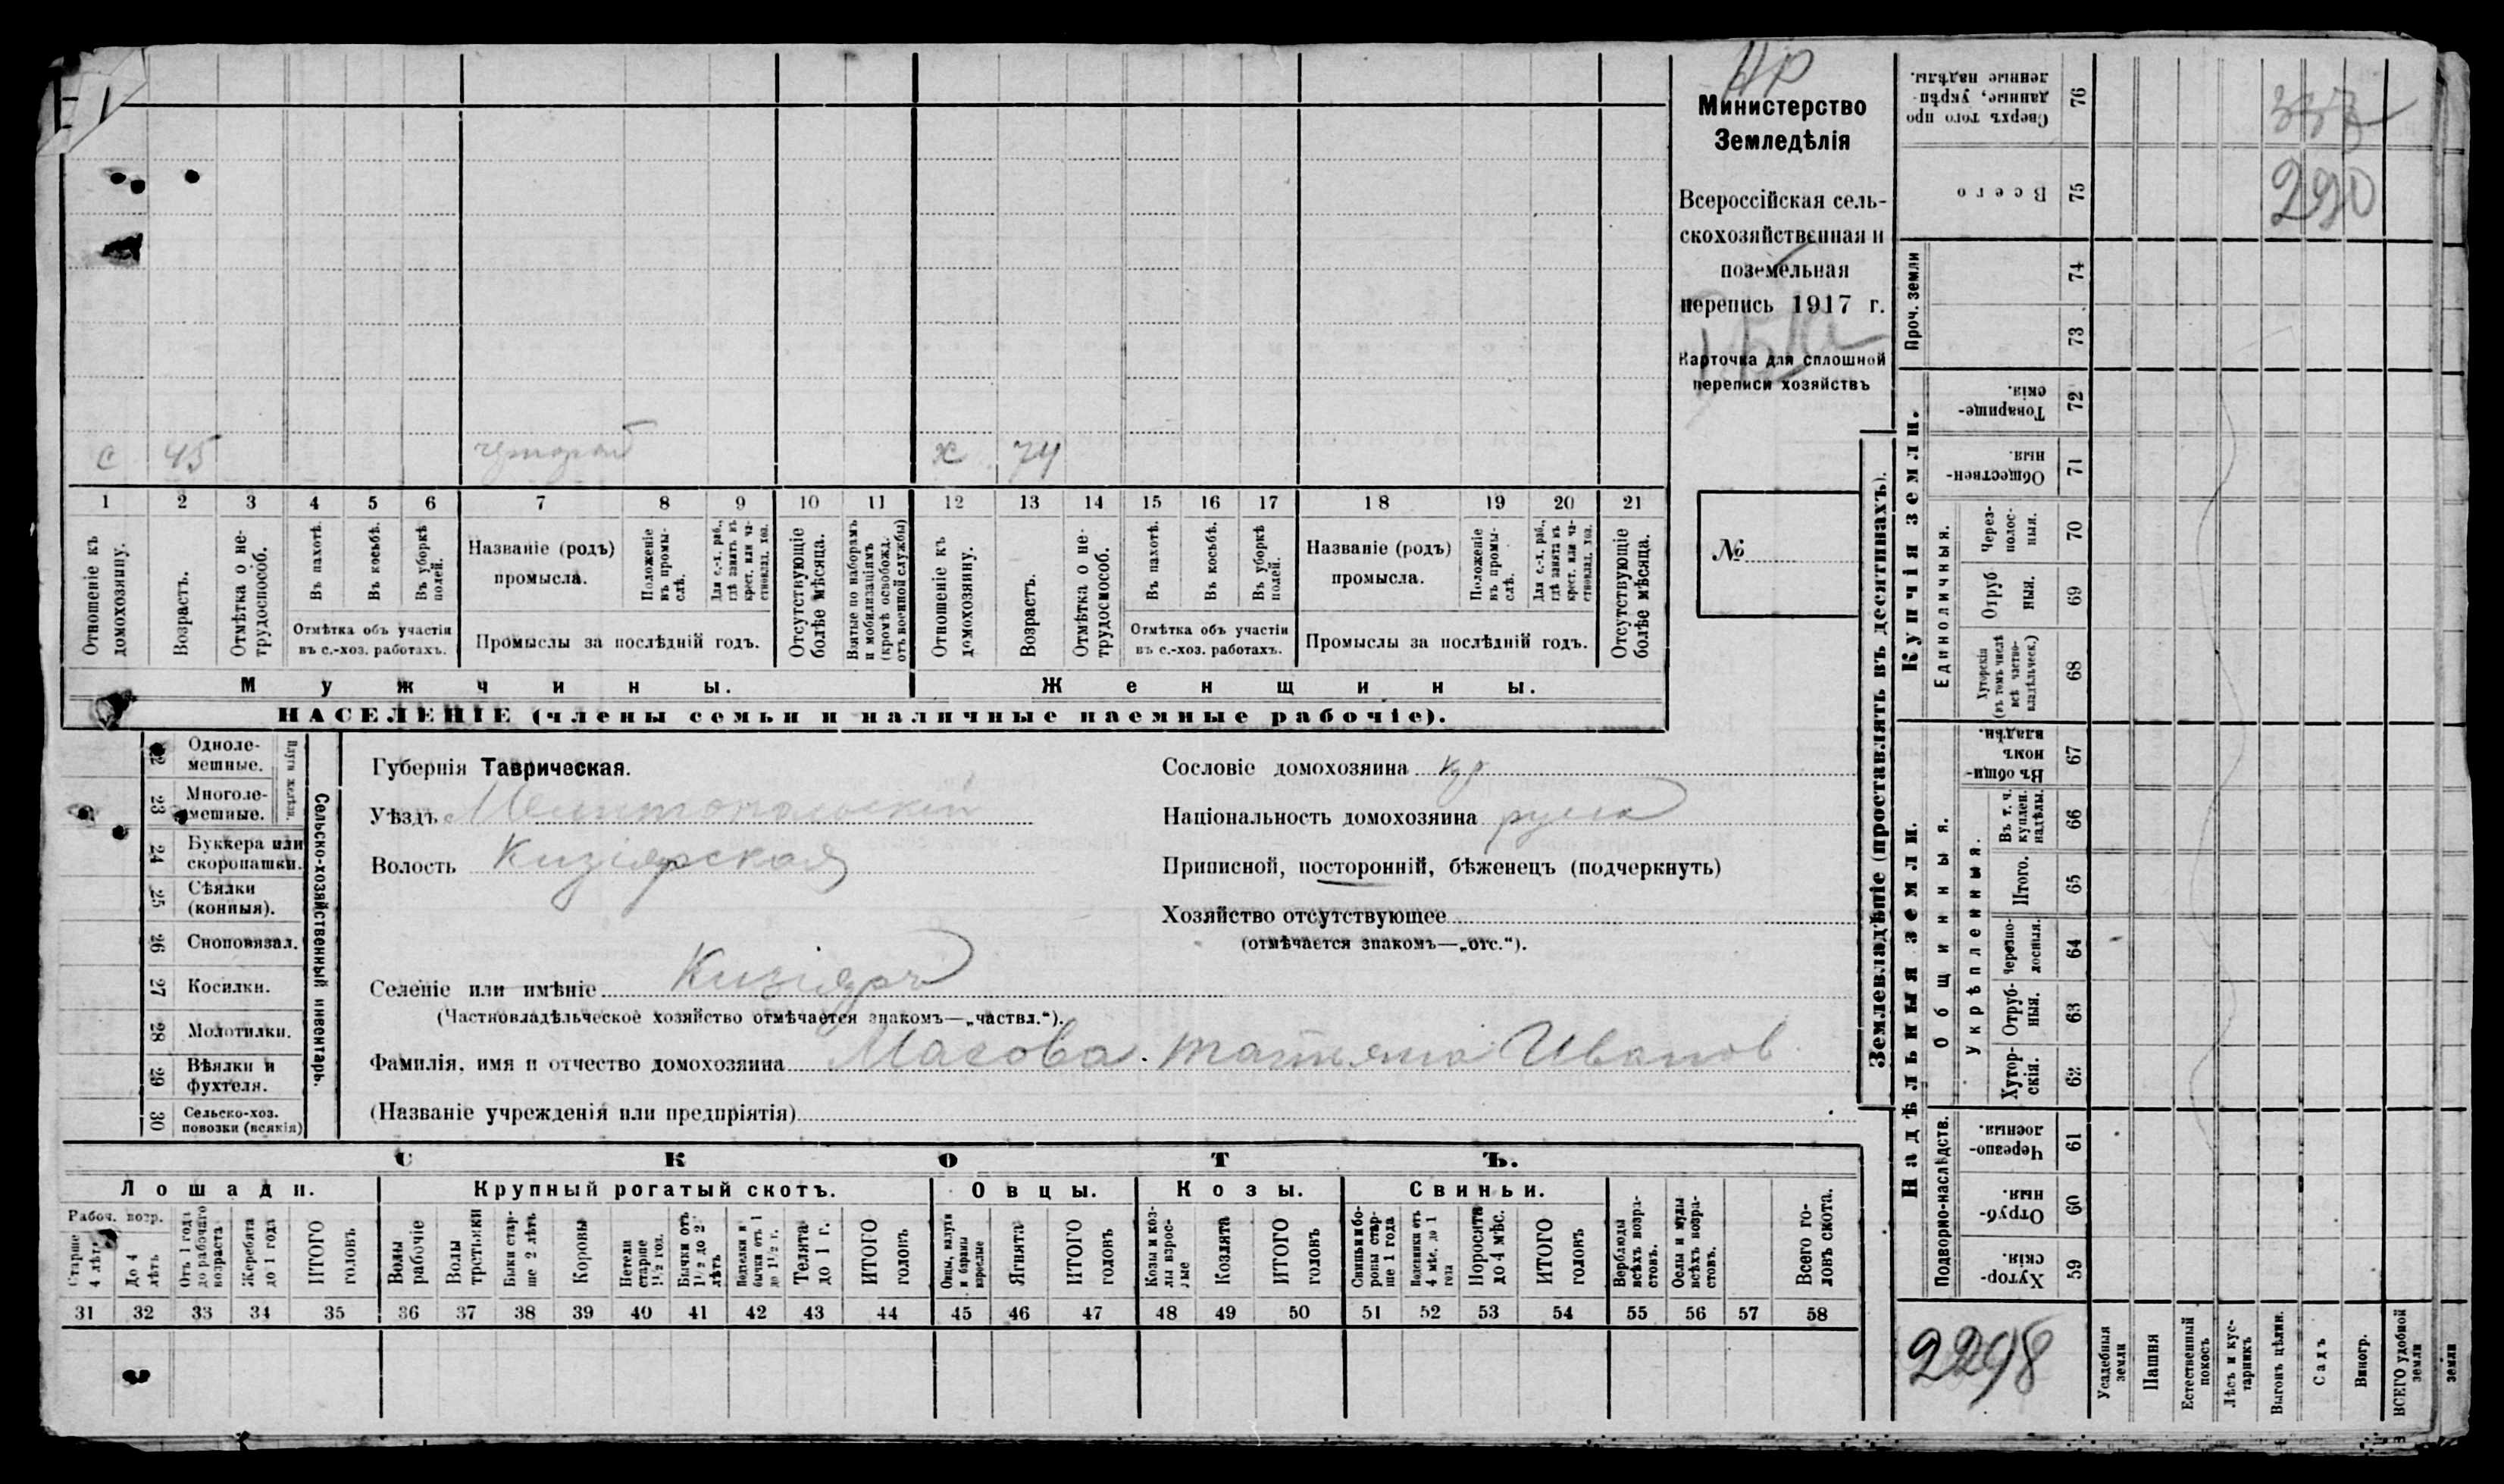 Нр
Министерство
Земледѣлія
Всероссійская сель-
скохозяйственная и
поземельная
перепись 1917 г.
Карточка для сплошной
переписи хозяйствъ
№
с 45 х 74
1 2 3 4 5 6 7 8 9 10 11 12 13 14 15 16 17 18 19 20 21
Отношеніе къ домохозяину.
Возрастъ.
Отмѣтка о не-трудоспособ.
Въ пахотѣ.
Въ косьбѣ.
Въ уборкѣ полей.
Отмѣтка объ участіи
въ с.-хоз. работахъ.
Названіе (родъ)
промысла.
Положеніе въ промы-слѣ.
Для с.-х. раб., гдѣ занятъ въ крест. или ча-стновлад. хоз.
Промыслы за послѣдній годъ.
Отсутствующіе болѣе мѣсяца.
Взятые по наборамъ и мобилизаціямъ (кромѣ освобожд. отъ военной службы)
Отношеніе къ домохозяину.
Возрастъ.
Отмѣтка о не-трудоспособ.
Въ пахотѣ.
Въ косьбѣ.
Въ уборкѣ полей.
Отмѣтка объ участіи
въ с.-хоз. работахъ.
Названіе (родъ)
промысла.
Положеніе въ промы-слѣ.
Для с.-х. раб., гдѣ занята въ крест. или ча-стновлад. хоз.
Промыслы за послѣдній годъ.
Отсутствующіе болѣе мѣсяца.
Мужчины. Женщины.
НАСЕЛЕНІЕ (члены семьи и наличные наемные рабочіе).
Сельско-хозяйственный инвентарь.
Плуги желѣзн.
22 Одноле-мешные.
23 Многоле-мешные.
24 Буккера или скоропашки.
25 Сѣялки (конныя).
26 Сноповязал.
27 Косилки.
28 Молотилки.
29 Вѣялки и фухтеля.
30 Сельско-хоз. повозки (всякія)
Губернія Таврическая.
Уѣздъ Мелитопольскій
Волость Кизіярская
Селеніе или имѣніе Кизіяръ
(Частновладѣльческое хозяйство отмѣчается знакомъ—„частвл.“).
Сословіе домохозяина кр
Національность домохозяина русск
Приписной, посторонній, бѣженецъ (подчеркнуть)
Хозяйство отсутствующее
(отмѣчается знакомъ—„отс.“).
Фамилія, имя и отчество домохозяина Масова. Татьяна Иванов
(Названіе учрежденія или предпріятія)
СКОТЪ.
Лошади. Крупный рогатый скотъ. Овцы. Козы. Свиньи.
Рабоч. возр.
Старше 4 лѣтъ
До 4 лѣтъ
Отъ 1 года до рабочаго возраста
Жеребята до 1 года
ИТОГО головъ
Волы рабочіе
Волы третьяки
Быки стар-ше 2 лѣтъ
Коровы
Нетели старше 1½ год.
Бычки отъ 1½ до 2 лѣтъ
Подтелки и бычки отъ 1 до 1½ г.
Телята до 1 г.
ИТОГО головъ
Овцы, валухи и бараны взрослые
Ягнята
ИТОГО головъ
Козы и коз-лы взрос-лые
Козлята
ИТОГО головъ
Свиньи и бо-ровы стар-ше 1 года
Подсвинки отъ 4 мѣс. до 1 года
Поросята до 4 мѣс.
ИТОГО головъ
Верблюды всѣхъ возра-стовъ.
Ослы и мулы всѣхъ возра-стовъ.
Всего го-ловъ скота.
31 32 33 34 35 36 37 38 39 40 41 42 43 44 45 46 47 48 49 50 51 52 53 54 55 56 57 58
Землевладѣніе (проставлять въ десятинахъ).
Сверхъ того про-данные, укрѣп-ленные надѣлы. 76
337
Всего 75
290
Проч. земли 74 73
Купчія земли.
Товарище-скія. 72
Обществен-ныя. 71
Единоличныя.
Через-полос-ныя. 70
Отруб-ныя. 69
Хуторскія (въ томъ числѣ всѣ частно-владѣльческ.) 68
Надѣльныя земли.
Общинныя.
Въ общи-номъ владѣн. 67
Укрѣпленныя.
Въ т. ч. куплен. надѣлы. 66
Итого. 65
Черезпо-лосныя. 64
Отруб-ныя. 63
Хутор-скія. 62
Подворно-наслѣдств.
Черезпо-лосныя. 61
Отруб-ныя. 60
Хутор-скія. 59
2298
Усадебныя земли
Пашня
Естественный покосъ
Лѣсъ и кус-тарникъ
Выгонъ цѣлин.
Садъ
Виногр.
ВСЕГО удобной земли
земли